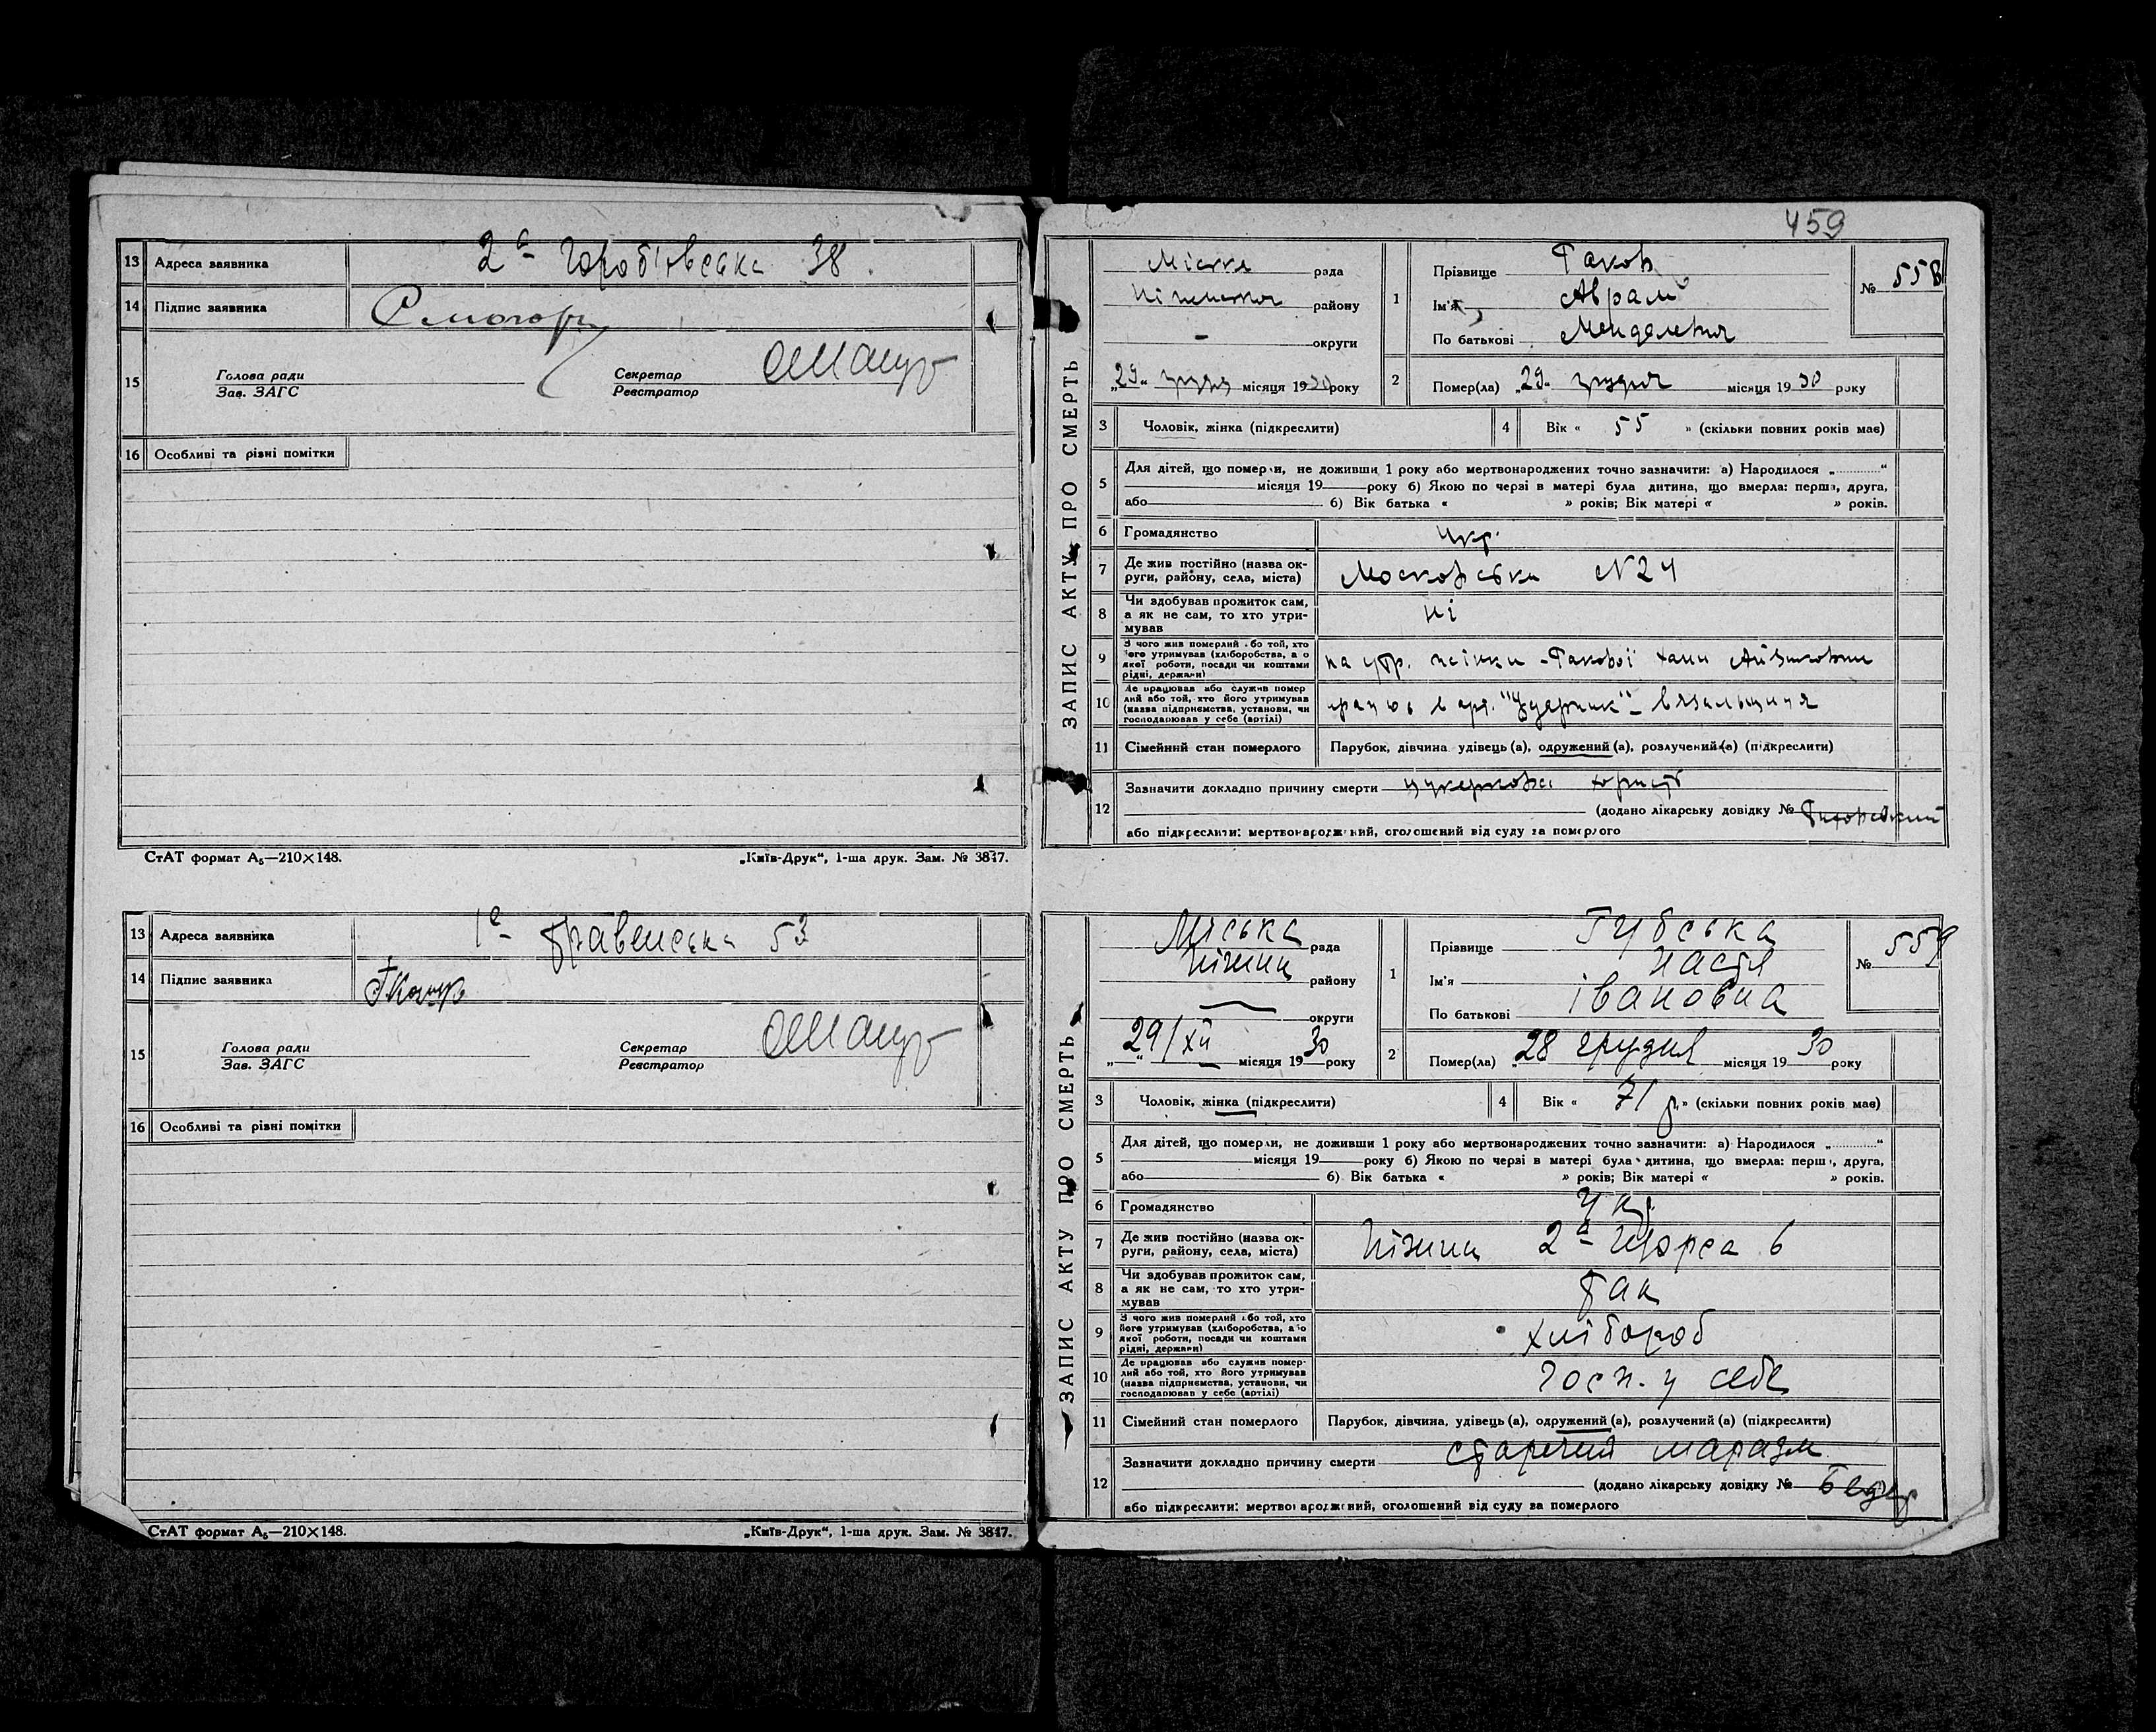 13 Адреса заявника 2а Гороб'ївська 38.
14 Підпис заявника Смогор
15 Голова ради Секретар
Зав. ЗАГС Реєстратор
16 Особливі та різні помітки
СтАТ формат А5—210×148. „Київ-Друк“, 1-ша друк. Зам. № 3847.
13 Адреса заявника 53
14 Підпис заявника
15 Голова ради Секретар
Зав. ЗАГС Реєстратор
16 Особливі та різні помітки
СтАТ формат А5—210×148. „Київ-Друк“, 1-ша друк. Зам. № 3847.
459
ЗАПИС АКТУ ПРО СМЕРТЬ
Міська рада
Ніженськ району
- округи
„29„ грудня місяця 1930 року
1 Прізвище Гаков
Ім'я Аврам
По батькові Менделевич
№ 558
2 Помер(ла) „29„ грудня місяця 1930 року
3 Чоловік, жінка (підкреслити)
4 Вік « 55 » (скільки повних років має)
5 Для дітей, що померли, не доживши 1 року або мертвонароджених точно зазначити: а) Народилося „ “
місяця 19 року б) Якою по черзі в матері була дитина, що вмерла: перша, друга,
або б) Вік батька « » років; Вік матері « » років.
6 Громадянство Укр.
7 Де жив постійно (назва округи, району, села, міста) Московська №24
8 Чи здобував прожиток сам, а як не сам, то хто утримував ні
9 З чого жив померлий або той, хто його утримував (хліборобства, а о якої роботи, посади чи коштами рідні, держави) на утр. жінки - Гакової Хани
10 Де працював або служив померлий або той, хто його утримував (назва підприємства, установи, чи господарював у себе (артілі) працює в арт. "Ударник" - вязальщиця
11 Сімейний стан померлого Парубок, дівчина, удівець (а), одружений (а), розлучений (а) (підкреслити)
12 Зазначити докладно причину смерти цукрова
(додано лікарську довідку №
або підкреслити: мертвонароджений, оголошений від суду за померлого
ЗАПИС АКТУ ПРО СМЕРТЬ
Міська рада
Ніжин району
округи
„29/XII“ місяця 1930 року
1 Прізвище Губська
Ім'я Настя
По батькові Івановна
№ 559
2 Помер(ла) „28 грудня місяця 1930 року
3 Чоловік, жінка (підкреслити)
4 Вік « 71 р.» (скільки повних років має)
5 Для дітей, що померли, не доживши 1 року або мертвонароджених точно зазначити: а) Народилося „ “
місяця 19 року б) Якою по черзі в матері була дитина, що вмерла: перша, друга,
або б) Вік батька « » років; Вік матері « » років.
6 Громадянство Укр.
7 Де жив постійно (назва округи, району, села, міста) Ніжин 2а Щорса 6
8 Чи здобував прожиток сам, а як не сам, то хто утримував так
9 З чого жив померлий або той, хто його утримував (хліборобства, або якої роботи, посади чи коштами рідні, держави) хлібороб
10 Де працював або служив померлий або той, хто його утримував (назва підприємства, установи, чи господарював у себе (артілі) Госп. у себе
11 Сімейний стан померлого Парубок, дівчина, удівець (а), одружений (а), розлучений (а) (підкреслити)
12 Зазначити докладно причину смерти старечий маразм
(додано лікарську довідку №
або підкреслити: мертвонароджений, оголошений від суду за померлого